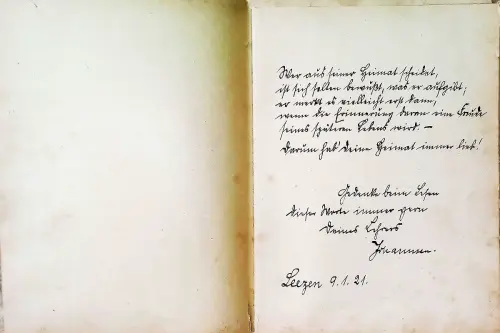 Wer aus seiner Heimat scheidet,
ist sich selten bewußt, was er aufgibt;
er merkt es vielleicht erst dann,
wenn die Erinnerung daran eine Freude
seines späteren Lebens wird. –
Darum hab' Deine Heimat immer lieb!
Gedenke beim Lesen
dieser Worte immer gern
Deines Lehrers
Johannsen.
Leezen 9.1.21.